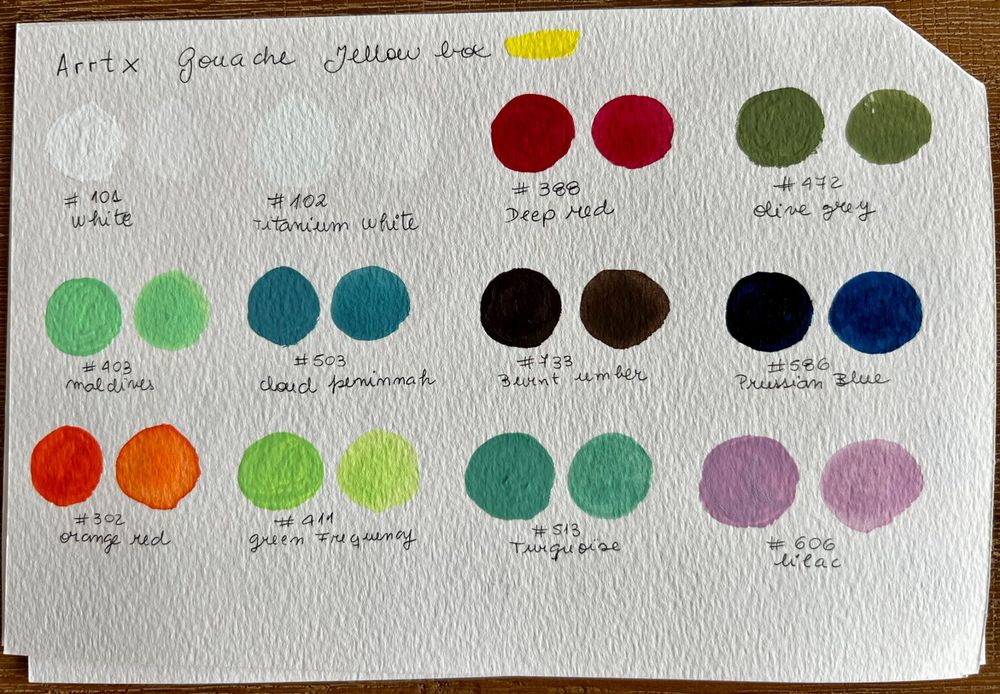 Arrtx Gouache Yellow box
#101
White
#102
Titanium white
#388
Deep red
#472
olive grey
#403
maldives
#503
cloud peninnah
#733
Burnt umber
#586
Prussian Blue
#302
orange red
#411
green Frequency
#513
Turquoise
#606
lilac